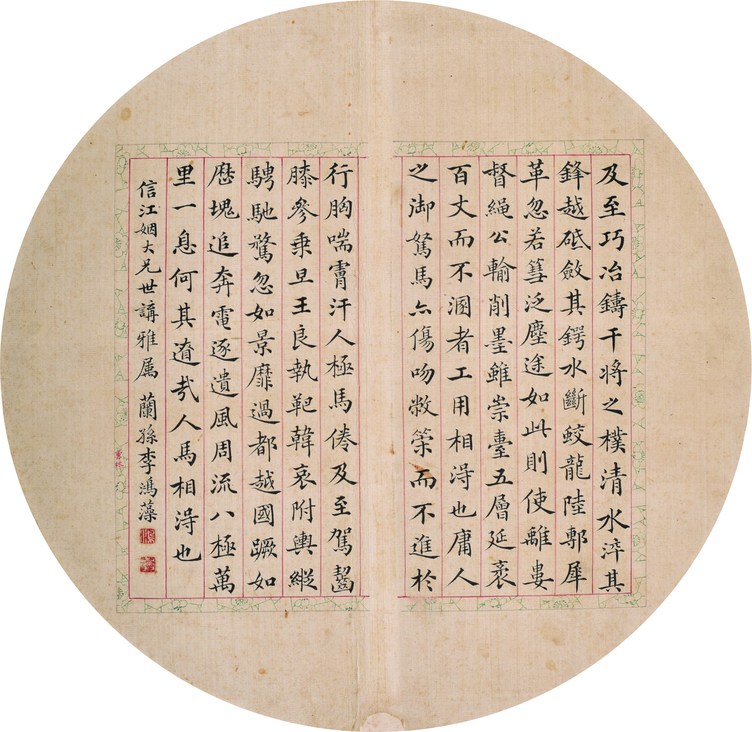 及至巧冶鑄干將之樸清水淬其
鋒越砥斂其鍔水斷蛟龍陸剸犀
革忽若篲泛塵途如此則使離婁
督繩公輸削墨雖崇臺五層延袤
百丈而不溷者工用相淂也庸人
之御駑馬亦傷吻敝策而不進於
行胸喘膚汗人極馬倦及至駕齧
膝參乘旦王良執靶韓哀附輿縱
騁馳騖忽如景靡過都越國蹶如
歷塊追奔電逐遺風周流八極萬
里一息何其遼哉人馬相淂也
信江姻大兄世講雅属 蘭孫李鴻藻